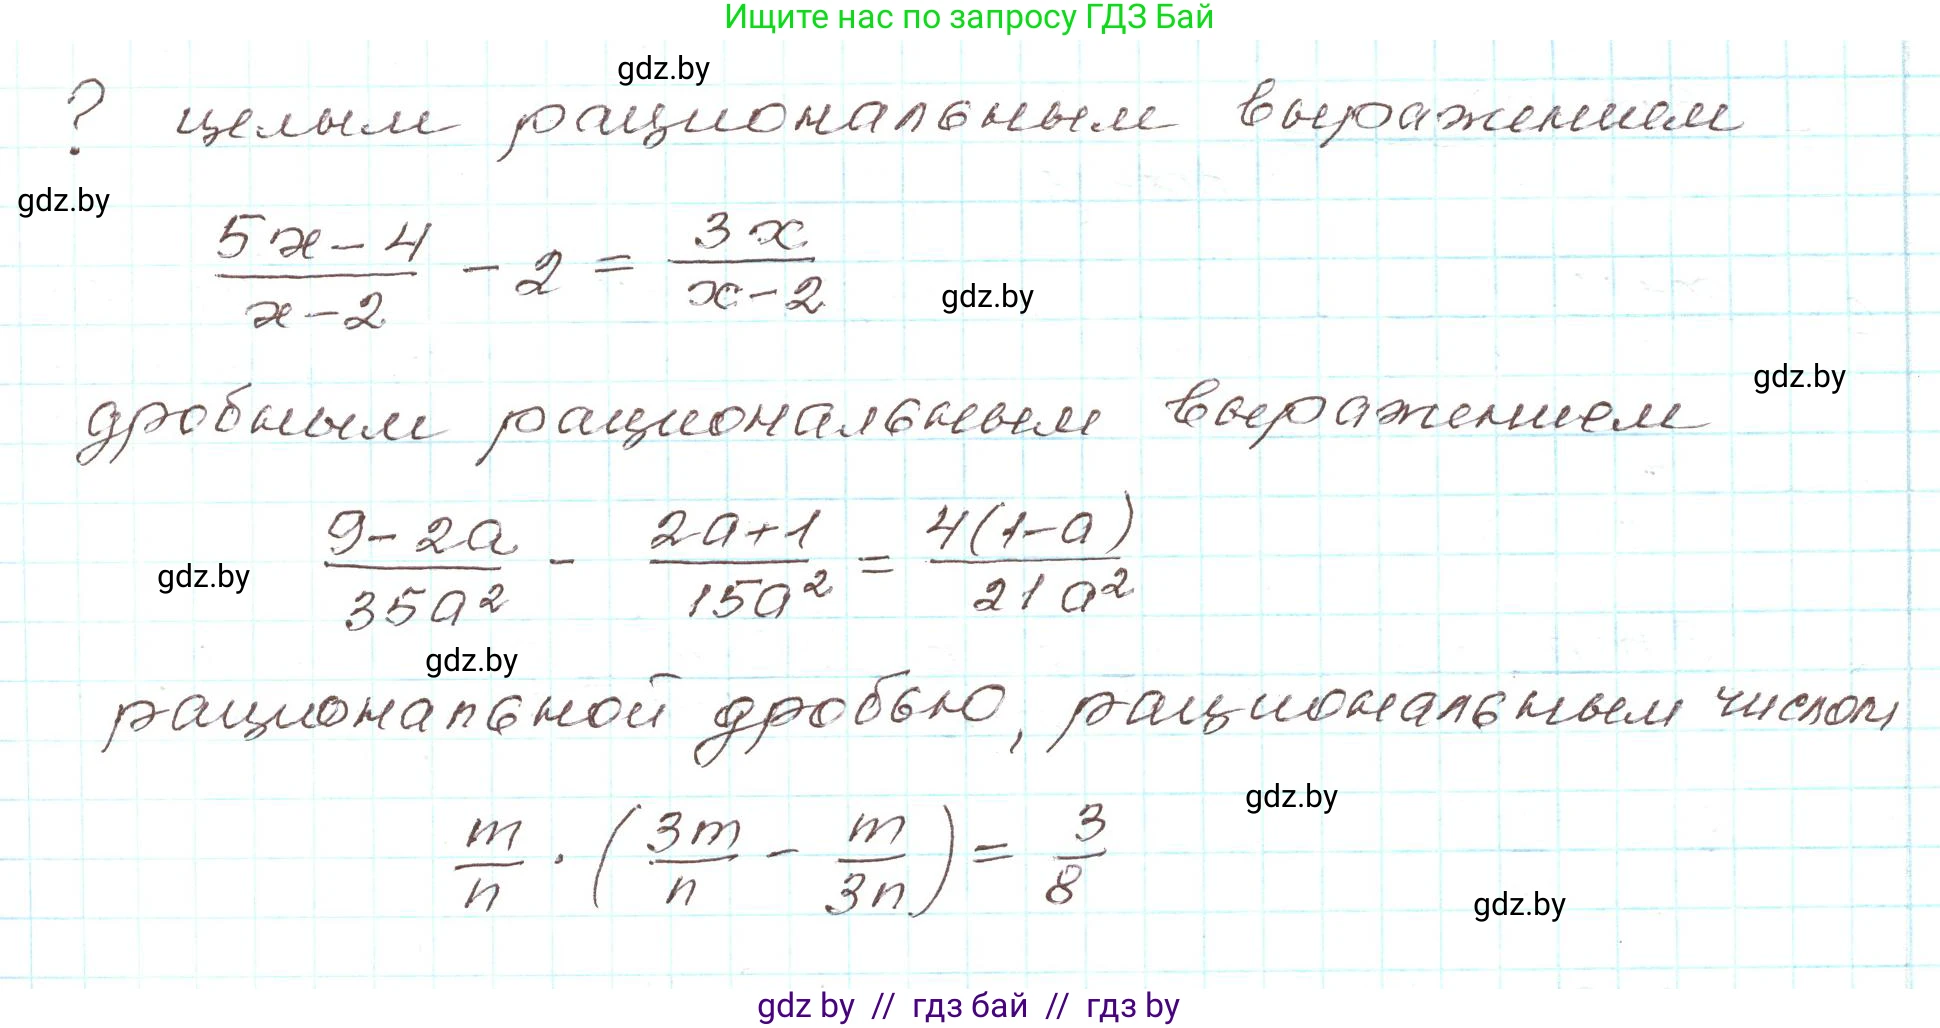 Ищите нас по запросу ГДЗ Бай
gdz.by
? целым рациональным выражением
gdz.by
(5x-4)/(x-2) - 2 = 3x/(x-2)
gdz.by
gdz.by
дробным рациональным выражением
(9-2a)/(35a²) - (2a+1)/(15a²) = 4(1-a)/(21a²)
gdz.by
gdz.by
рациональной дробью, рациональным числом
gdz.by
m/n · (3m/n - m/3n) = 3/8
gdz.by
gdz by // гдз бай // гдз by